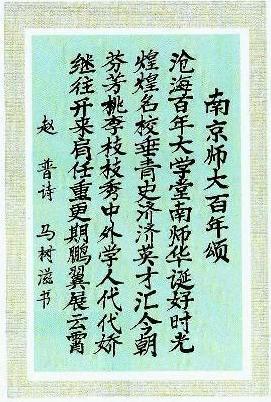 南京师大百年颂
沧海百年大学堂南师华诞好时光
煌煌名校垂青史济济英才汇今朝
芬芳桃李枝枝秀中外学人代代娇
继往开来肩任重更期鹏翼展云霄
赵普诗 马树滋书